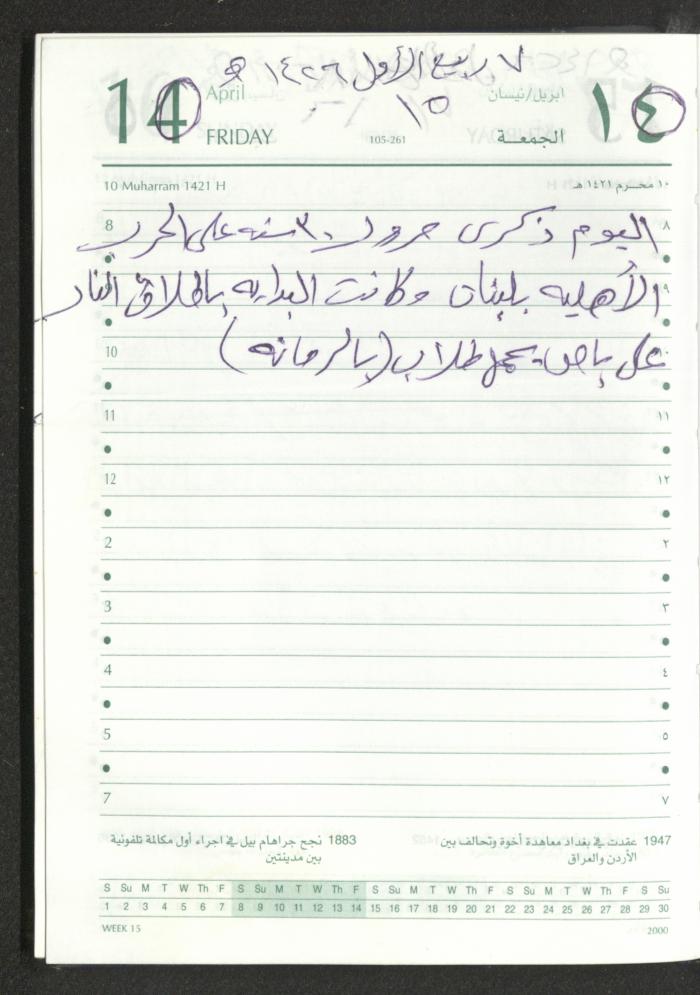 ٧ ربيع الأول ١٤٢٦ هـ
14 April ١٥ ابريل/نيسان ١٤
FRIDAY 105-261 الجمعـة
10 Muharram 1421 H ١٠ محـرم ١٤٢١ هـ
8 اليوم ذكرى مرور ٣٠ سنه على الحرب ٨
الأهليه بلبنان وكانت البدايه بإطلاق النار ٩
10 على باص يحمل طلاب (بالرمانه)
11 ١١
12 ١٢
2 ٢
3 ٣
4 ٤
5 ٥
7 ٧
1947 عقدت في بغداد معاهدة أخوة وتحالف بين
الأردن والعراق
1883 نجح جراهام بيل في اجراء أول مكالمة تلفونية
بين مدينتين
S Su M T W Th F S Su M T W Th F S Su M T W Th F S Su M T W Th F S Su
1 2 3 4 5 6 7 8 9 10 11 12 13 14 15 16 17 18 19 20 21 22 23 24 25 26 27 28 29 30
WEEK 15 2000